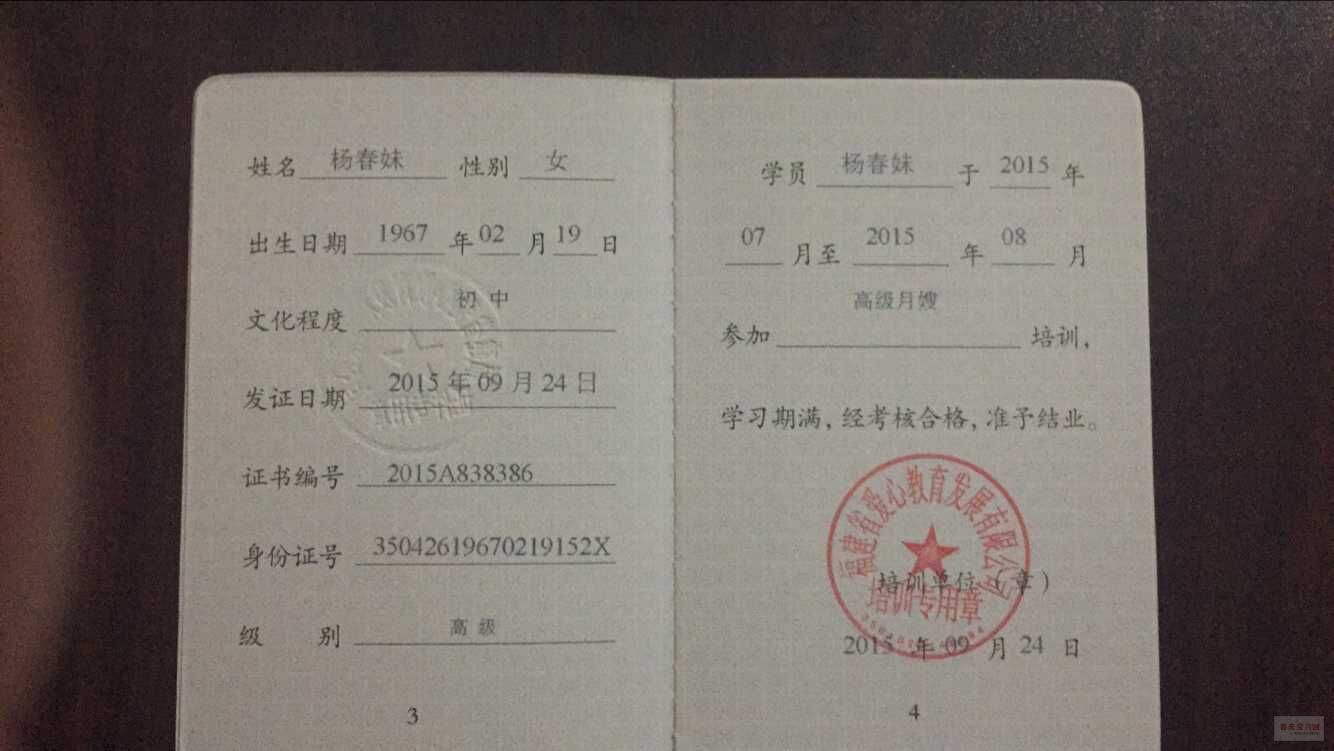 姓名 杨春妹 性别 女
出生日期 1967 年 02 月 19 日
文化程度 初 中
发证日期 2015 年 09 月 24 日
证书编号 2015A838386
身份证号 35042619670219152X
级 别 高 级
3
学员 杨春妹 于 2015 年
07 月至 2015 年 08 月
高级月嫂
参加 培训，
学习期满，经考核合格，准予结业。
福建省爱心教育发展有限公司
培训单位（章）
培训专用章
2015 年 09 月 24 日
4